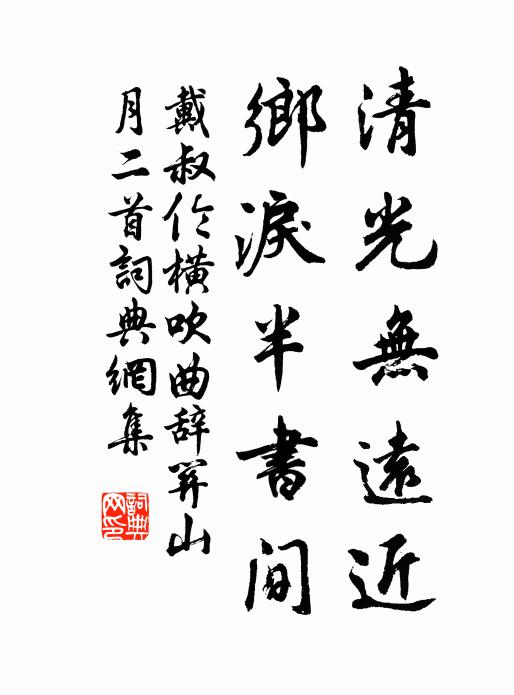 清光無遠近
鄉淚半書間
戴叔伦橫吹曲辞関山
月二首詞典網集
詞典网印